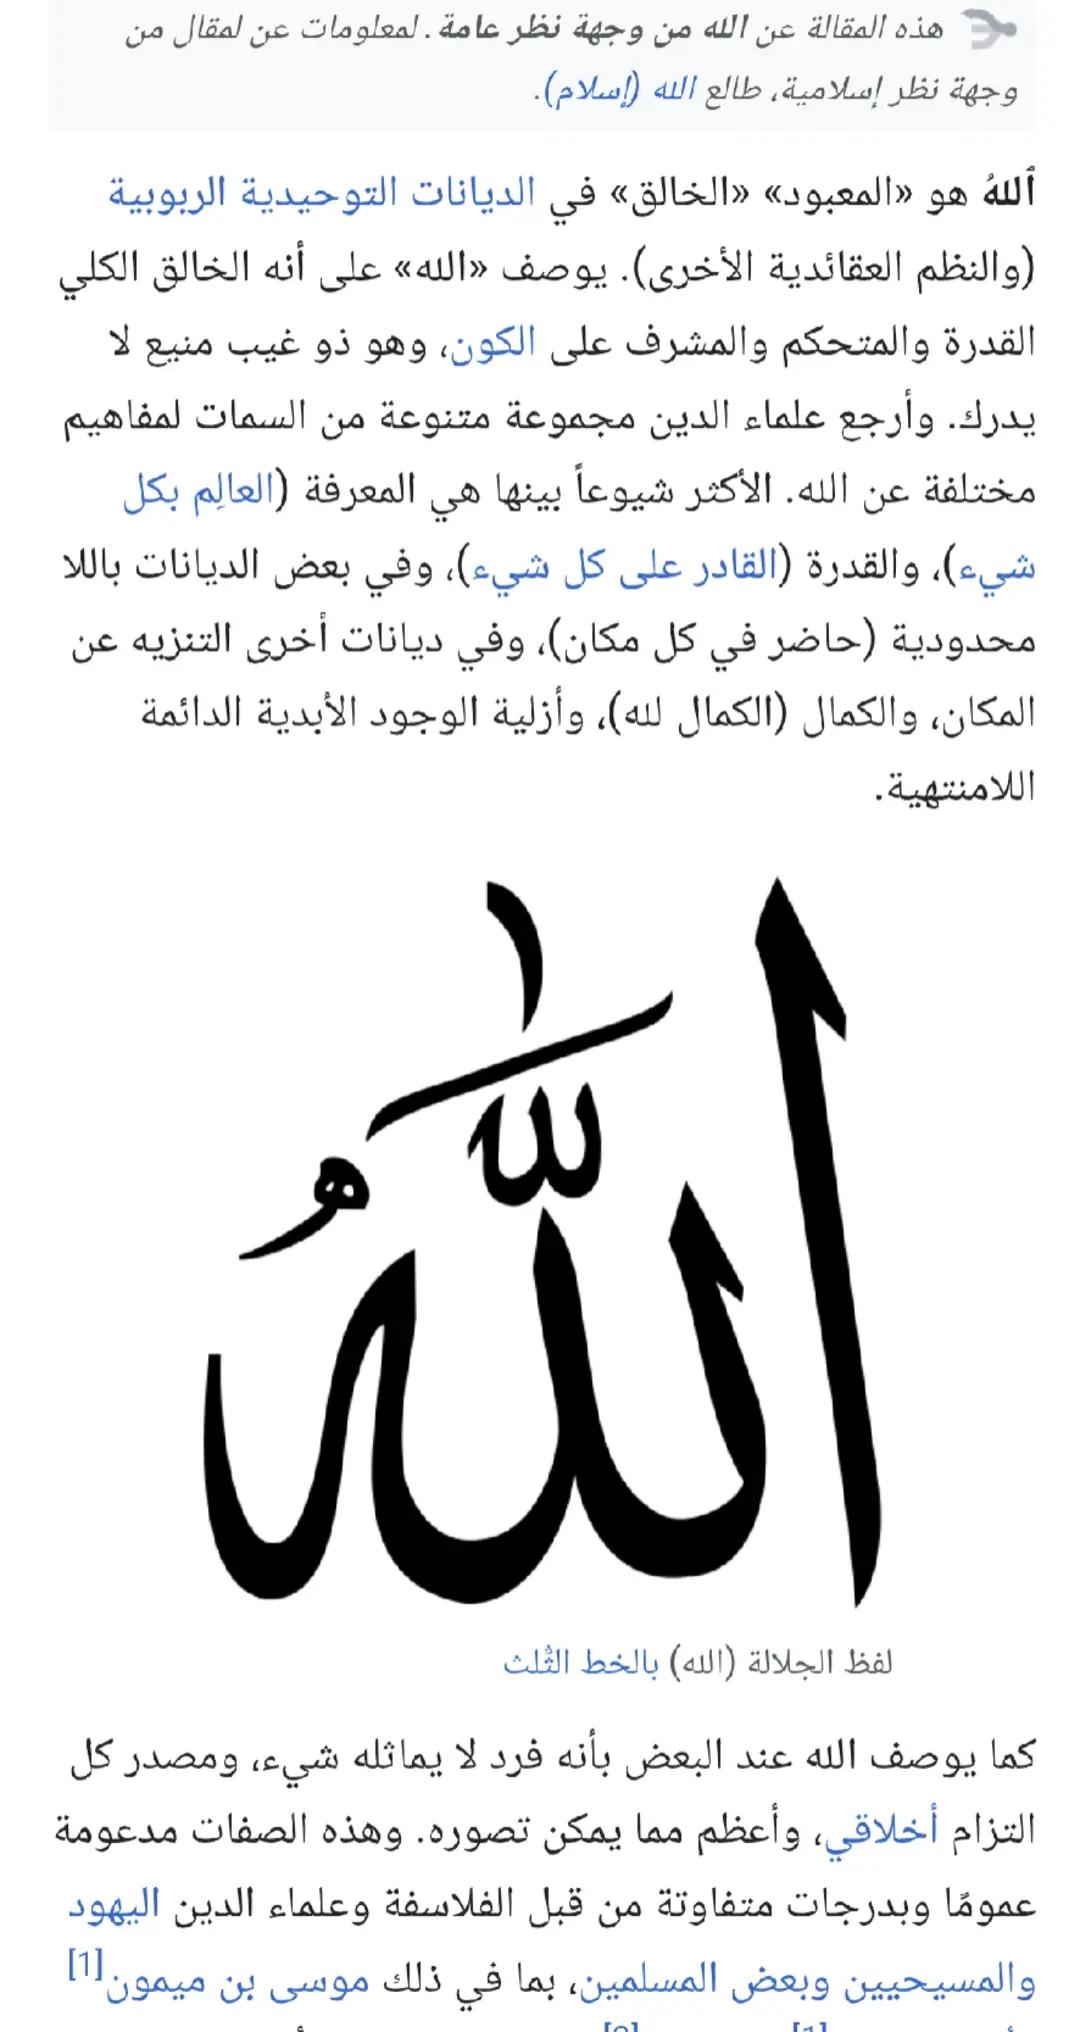 هذه المقالة عن الله من وجهة نظر عامة. لمعلومات عن لمقال من
وجهة نظر إسلامية، طالع الله (إسلام).
ٱللهُ هو «المعبود» «الخالق» في الديانات التوحيدية الربوبية
(والنظم العقائدية الأخرى). يوصف «الله» على أنه الخالق الكلي
القدرة والمتحكم والمشرف على الكون، وهو ذو غيب منيع لا
يدرك. وأرجع علماء الدين مجموعة متنوعة من السمات لمفاهيم
مختلفة عن الله. الأكثر شيوعاً بينها هي المعرفة (العالِم بكل
شيء)، والقدرة (القادر على كل شيء)، وفي بعض الديانات باللا
محدودية (حاضر في كل مكان)، وفي ديانات أخرى التنزيه عن
المكان، والكمال (الكمال لله)، وأزلية الوجود الأبدية الدائمة
اللامنتهية.
الله
لفظ الجلالة (الله) بالخط الثُّلث
كما يوصف الله عند البعض بأنه فرد لا يماثله شيء، ومصدر كل
التزام أخلاقي، وأعظم مما يمكن تصوره. وهذه الصفات مدعومة
عمومًا وبدرجات متفاوتة من قبل الفلاسفة وعلماء الدين اليهود
والمسيحيين وبعض المسلمين، بما في ذلك موسى بن ميمون[1]